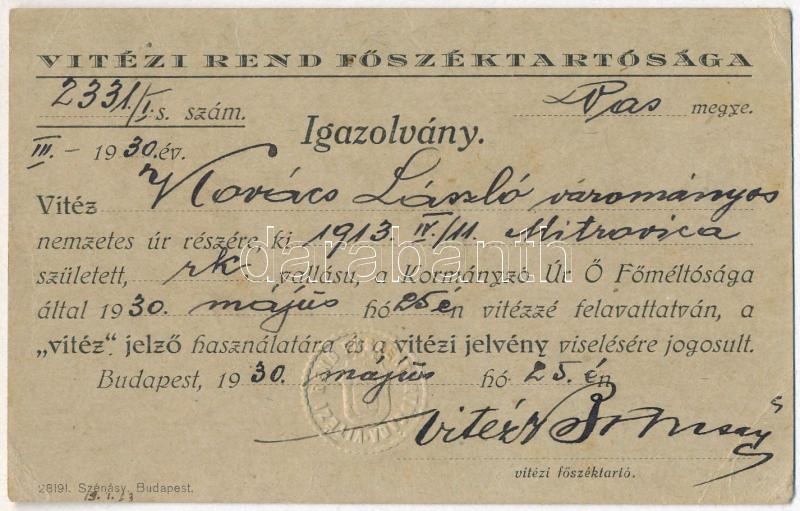 VITÉZI REND FŐSZÉKTARTÓSÁGA
2331/I. s. szám.
Vas megye.
Igazolvány.
III. – 1930. év.
Vitéz Kovács László várományos
nemzetes úr részére ki 1913. IV/11. Mitrovica
született, rk vallásu, a Kormányzó Úr Ő Főméltósága
által 1930. május hó 25 én vitézzé felavattatván, a
„vitéz” jelző használatára és a vitézi jelvény viselésére jogosult.
Budapest, 1930. május hó 25. én
vitéz
vitézi főszéktartó.
28191. Szénásy, Budapest.
darabanth